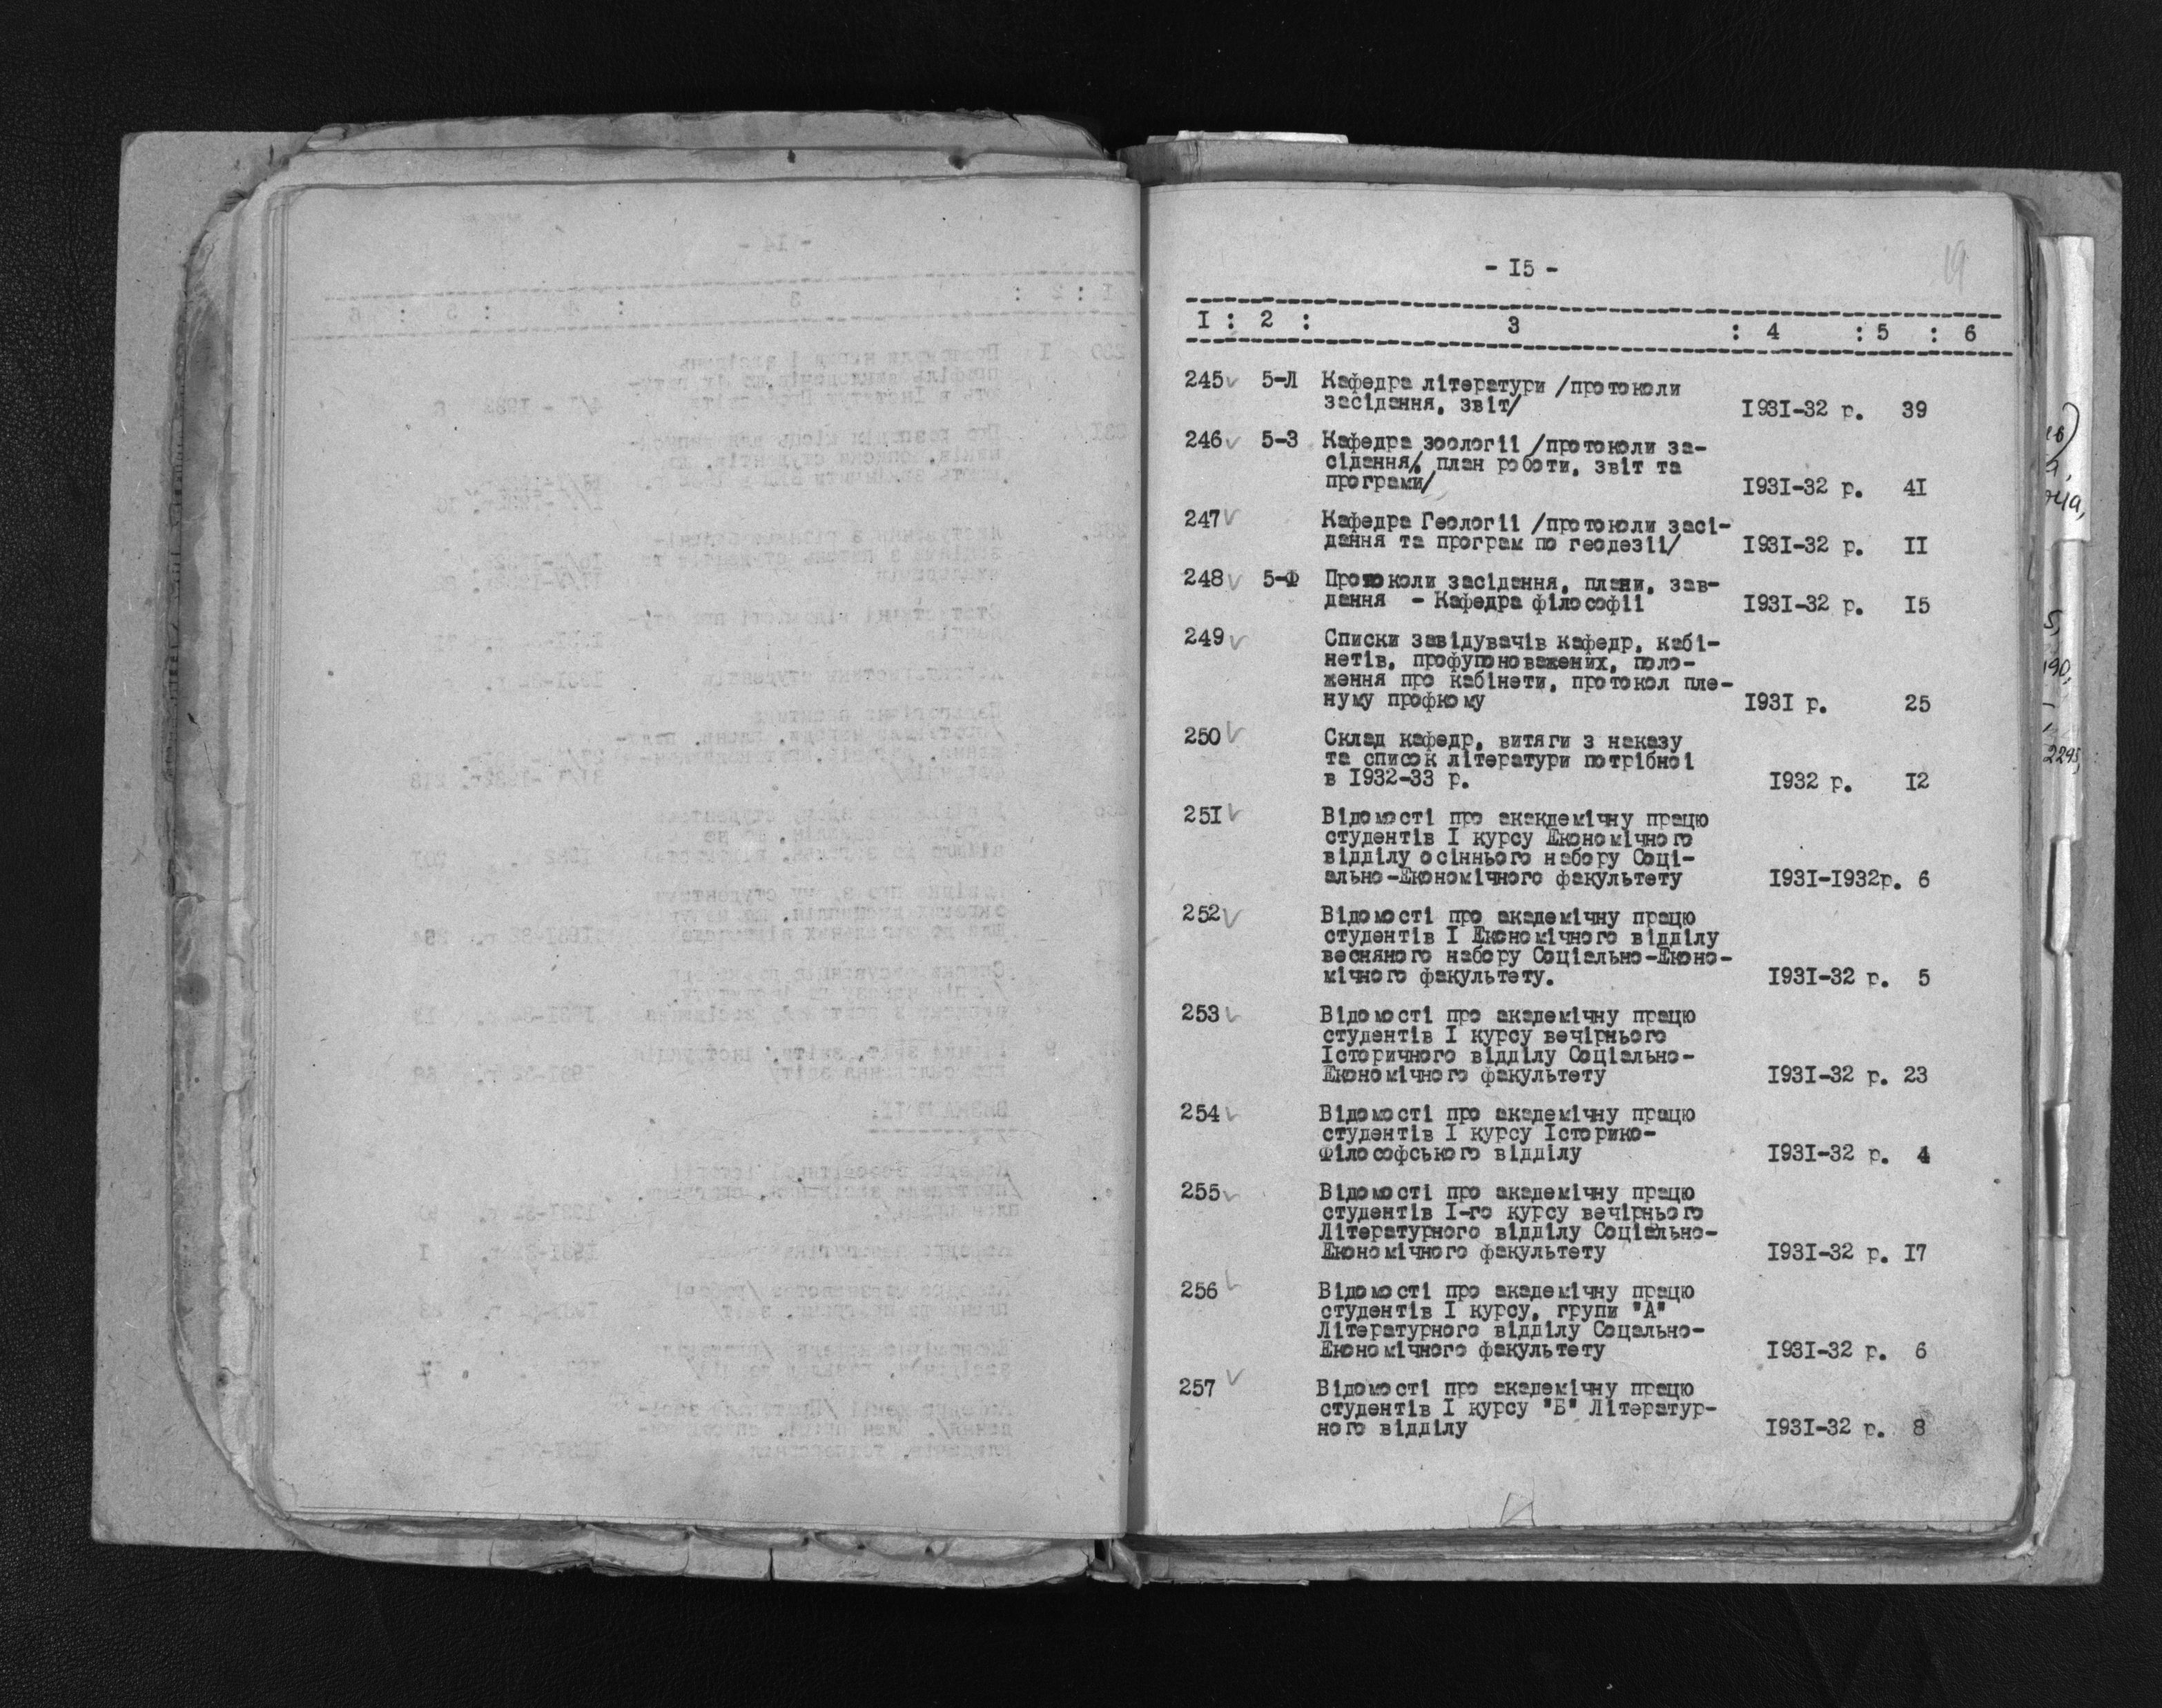 - I5 -
19
I : 2 : 3 : 4 : 5 : 6
245 5-Л Кафедра літератури /протоколи
засідання, звіт/ I93I-32 р. 39
246 5-З Кафедра зоології /протоколи за-
сідання/, план роботи, звіт та
програми/ I93I-32 р. 4I
247 Кафедра Геології /протоколи засі-
дання та програм по геодезії/ I93I-32 р. II
248 5-Ф Протоколи засідання, плани, зав-
дання - Кафедра філософії I93I-32 р. I5
249 Списки завідувачів кафедр, кабі-
нетів, профупоноважених, поло-
ження про кабінети, протокол пле-
нуму профкому I93I р. 25
250 Склад кафедр, витяги з наказу
та список літератури потрібної
в I932-33 р. I932 р. I2
25I Відомості про акакдемічну працю
студентів I курсу Економічного
відділу осіннього набору Соці-
ально-Економічного факультету I93I-I932р. 6
252 Відомості про академічну працю
студентів I Економічного відділу
весняного набору Соціально-Еконо-
мічного факультету. I93I-32 р. 5
253 Відомості про академічну працю
студентів I курсу вечірнього
Історичного відділу Соціально-
Економічного факультету I93I-32 р. 23
254 Відомості про академічну працю
студентів I курсу Історико-
Філософського відділу I93I-32 р. 4
255 Відомості про академічну працю
студентів I-го курсу вечірнього
Літературного відділу Соціально-
Економічного факультету I93I-32 р. I7
256 Відомості про академічну працю
студентів I курсу, групи "А"
Літературного відділу Соцально-
Економічного факультету I93I-32 р. 6
257 Відомості про академічну працю
студентів I курсу "Б" Літератур-
ного відділу I93I-32 р. 8